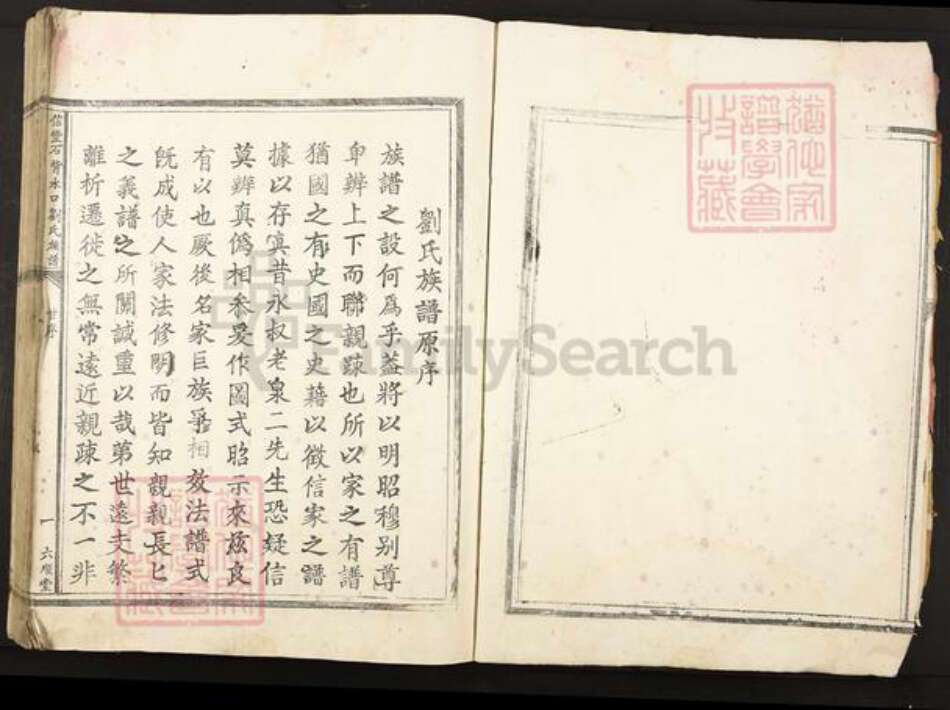 劉氏族譜原序
族譜之設何爲乎蓋將以明昭穆別尊
卑辨上下而聯親疎也所以家之有譜
猶國之有史國之史藉以徵信家之譜
據以存寔昔永叔老泉二先生恐疑信
莫辨眞僞相叅爰作圖式昭示來茲良
有以也厥後名家巨族爭相效法譜式
旣成使人家法修明而皆知親親長匕
之義譜之所關誠重以哉第世遠支繁
離析遷徙之無常遠近親疎之不一非
信豐石背水口劉氏族譜
世序
一
六順堂
猶他家
譜學會
收藏
FamilySearch